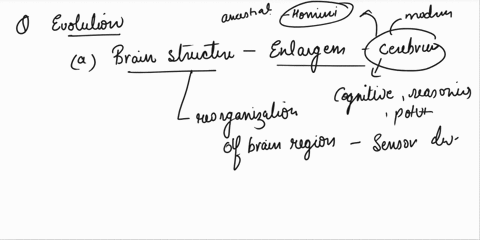 Q Evolution
ancestral - Homini modern
(a) Brain structure - Enlargem - Cerebrum
Cognitive, reasoning
, potut
reorganization
of brain region - Sensor dev.